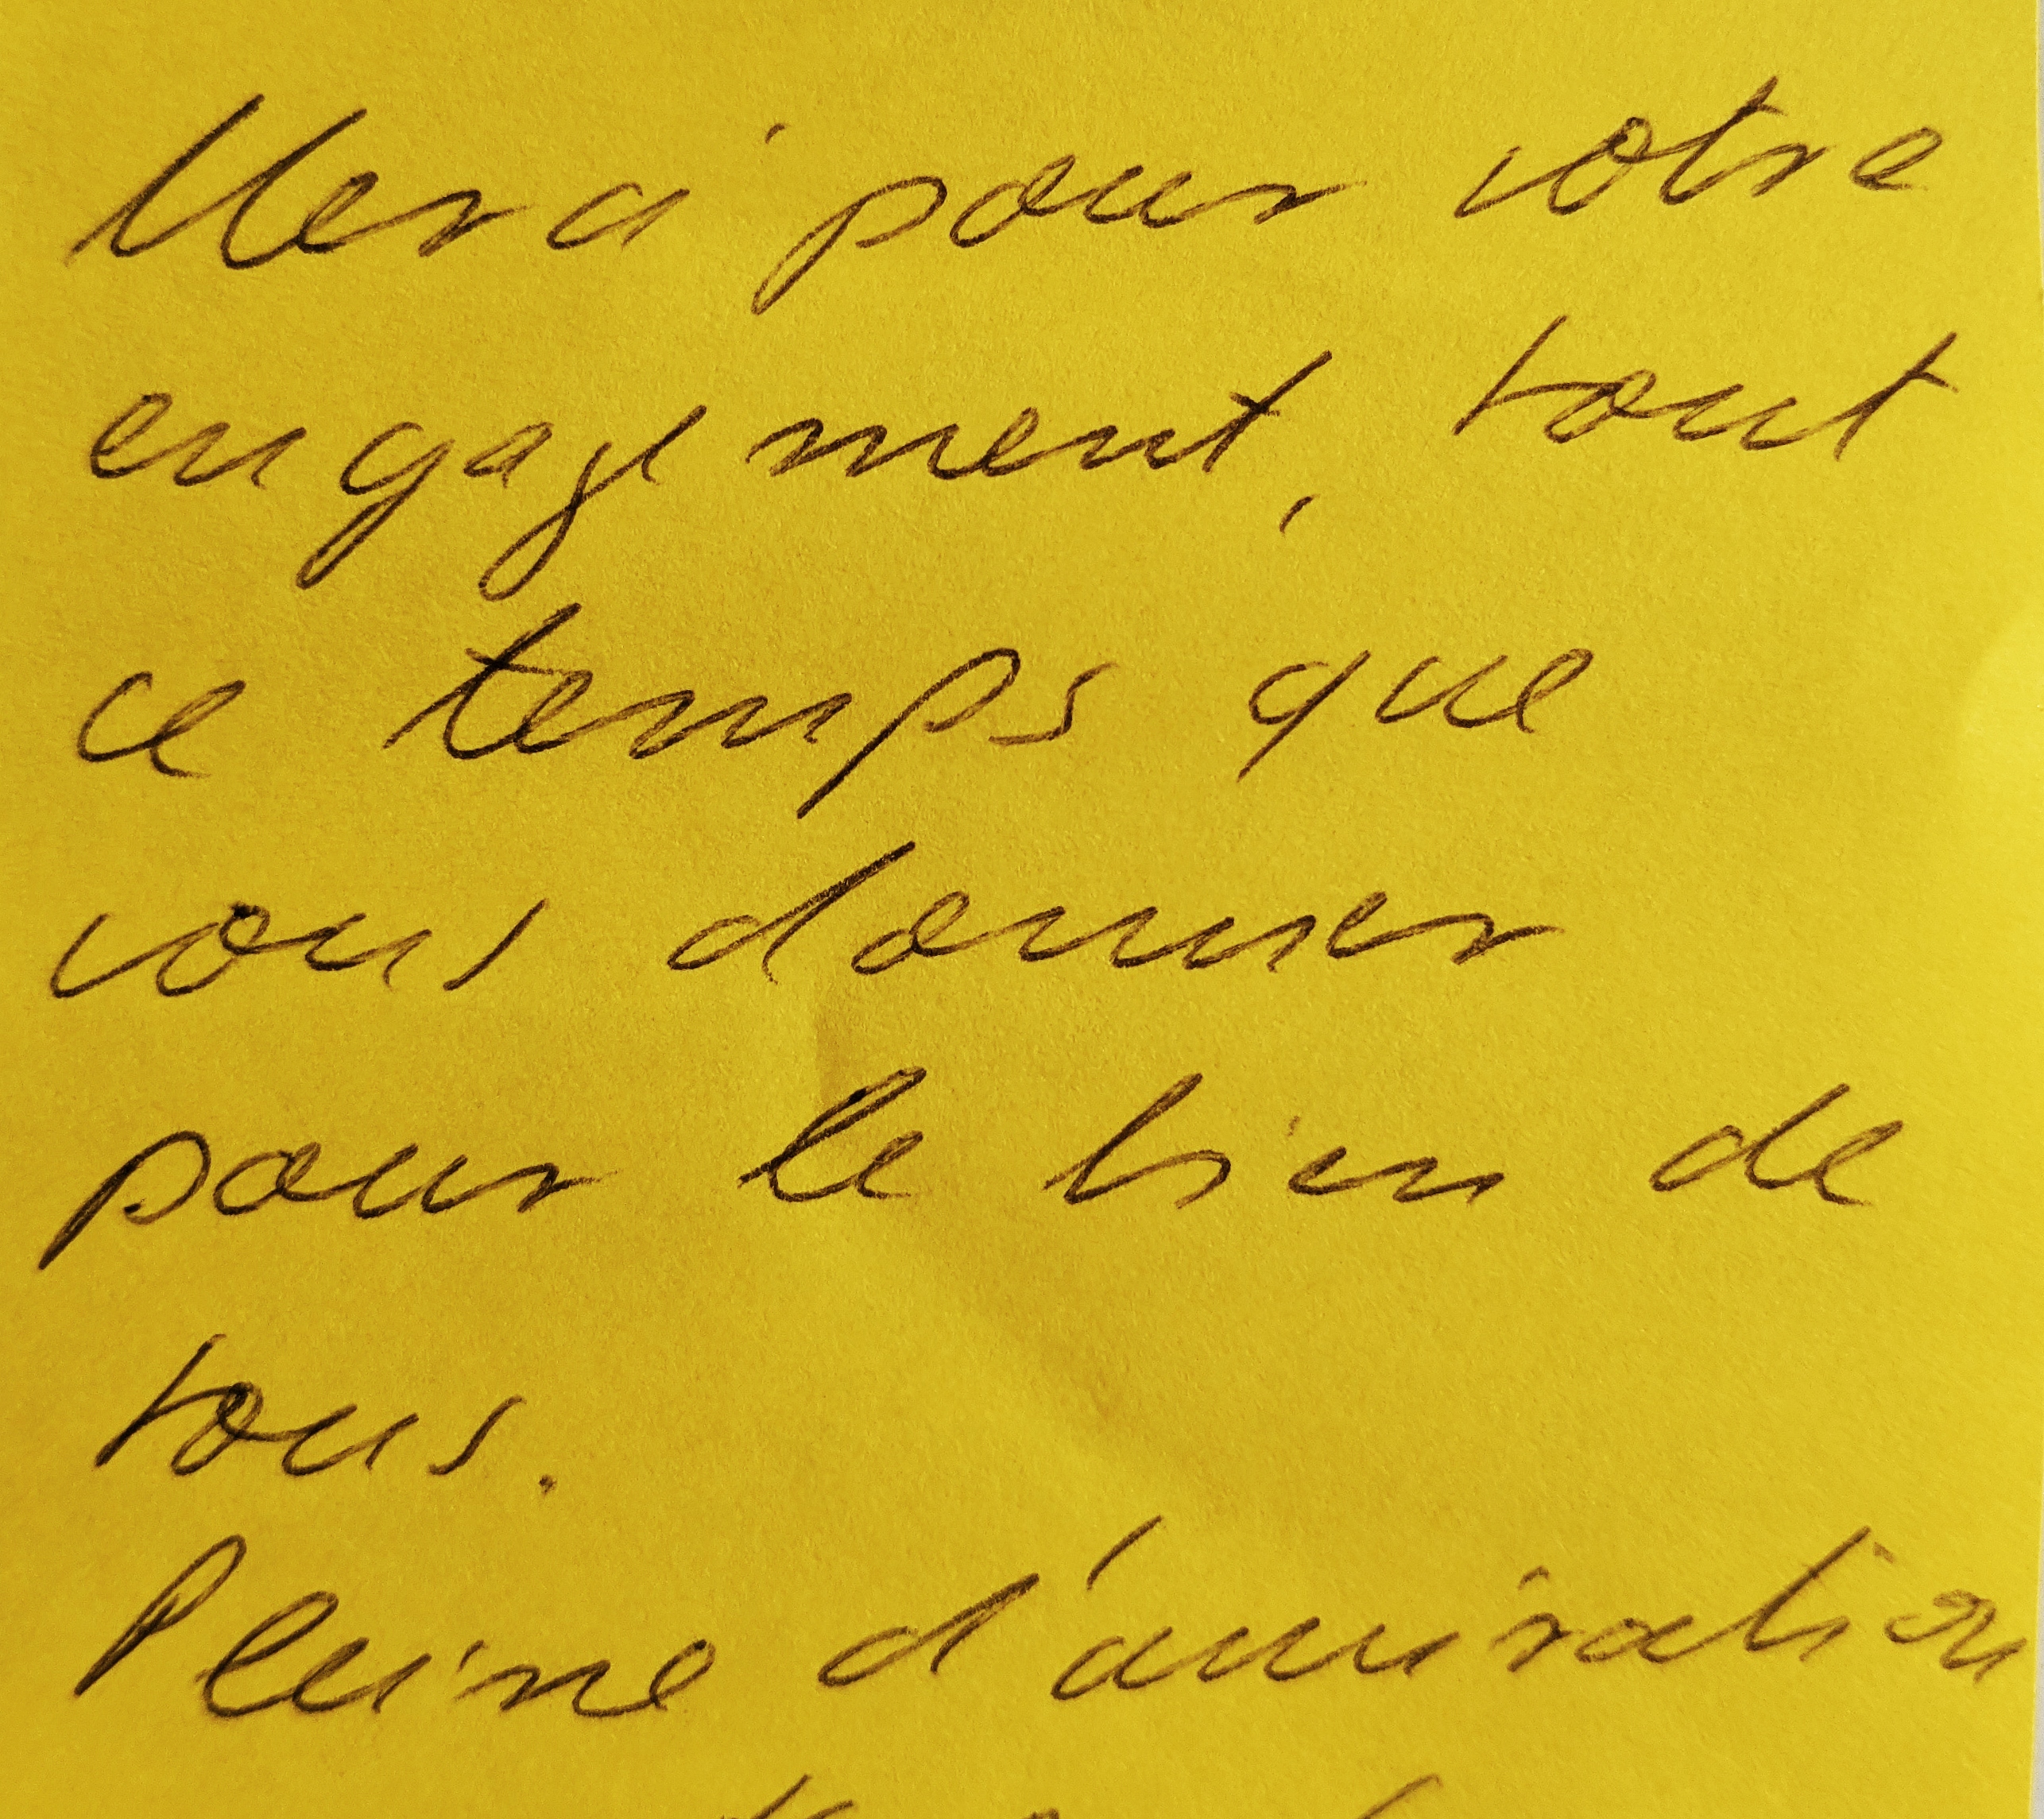 Merci pour votre
engagement, tout
ce temps que
vous donner
pour le bien de
tous.
Pleine d'amiration